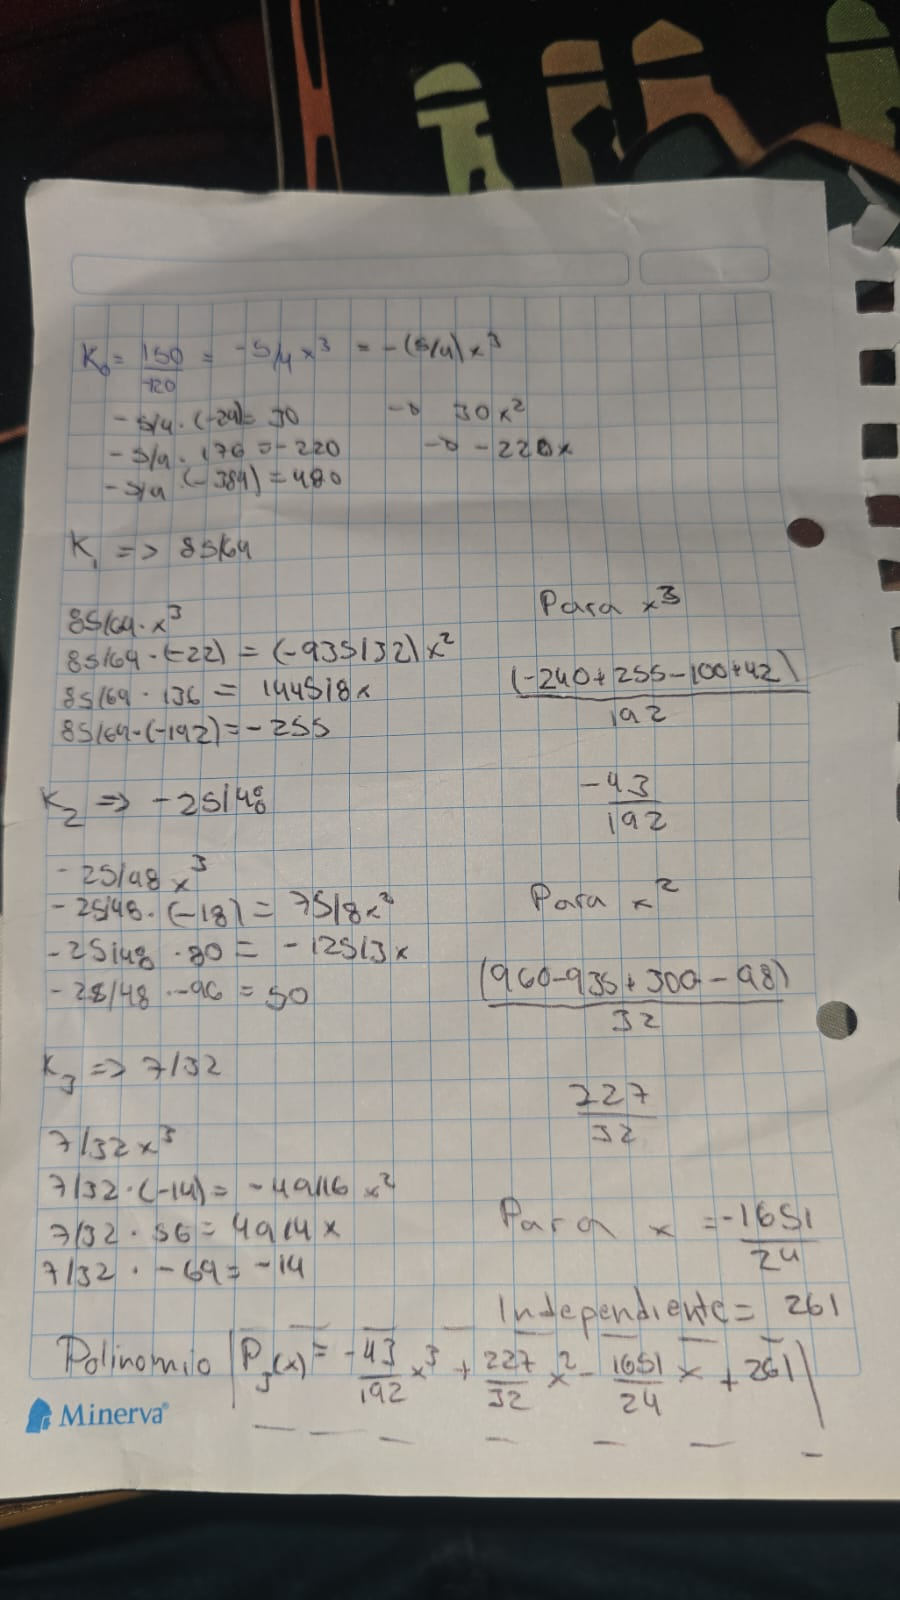 K₀ = 150/-120 = -5/4 x³ = -(5/4)x³
-5/4 · (-24) = 30 → 30x²
-5/4 · 176 = -220 → -220x
-5/4 (-384) = 480
K₁ => 85/64
85/64 · x³
85/64 · (-22) = (-935/32)x²
85/64 · 136 = 1445/8x
85/64 · (-192) = -255
K₂ => -25/48
-25/48 x³
-25/48 · (-18) = 75/8x²
-25/48 · 80 = -125/3x
-25/48 · -96 = 50
K₃ => 7/32
7/32x³
7/32 · (-14) = -49/16 x²
7/32 · 56 = 49/4 x
7/32 · -64 = -14
Para x³
(-240+255-100+42)/192
-43/192
Para x²
(960-935+300-98)/32
227/32
Para x = -1651/24
Independiente = 261
Polinomio P₃(x) = -43/192 x³ + 227/32 x² - 1651/24 x + 261
Minerva